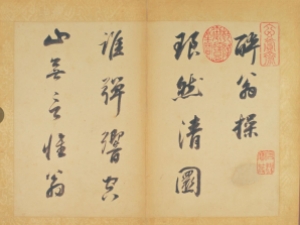 醉翁操
琅然清圜
誰彈響空
山無言惟翁